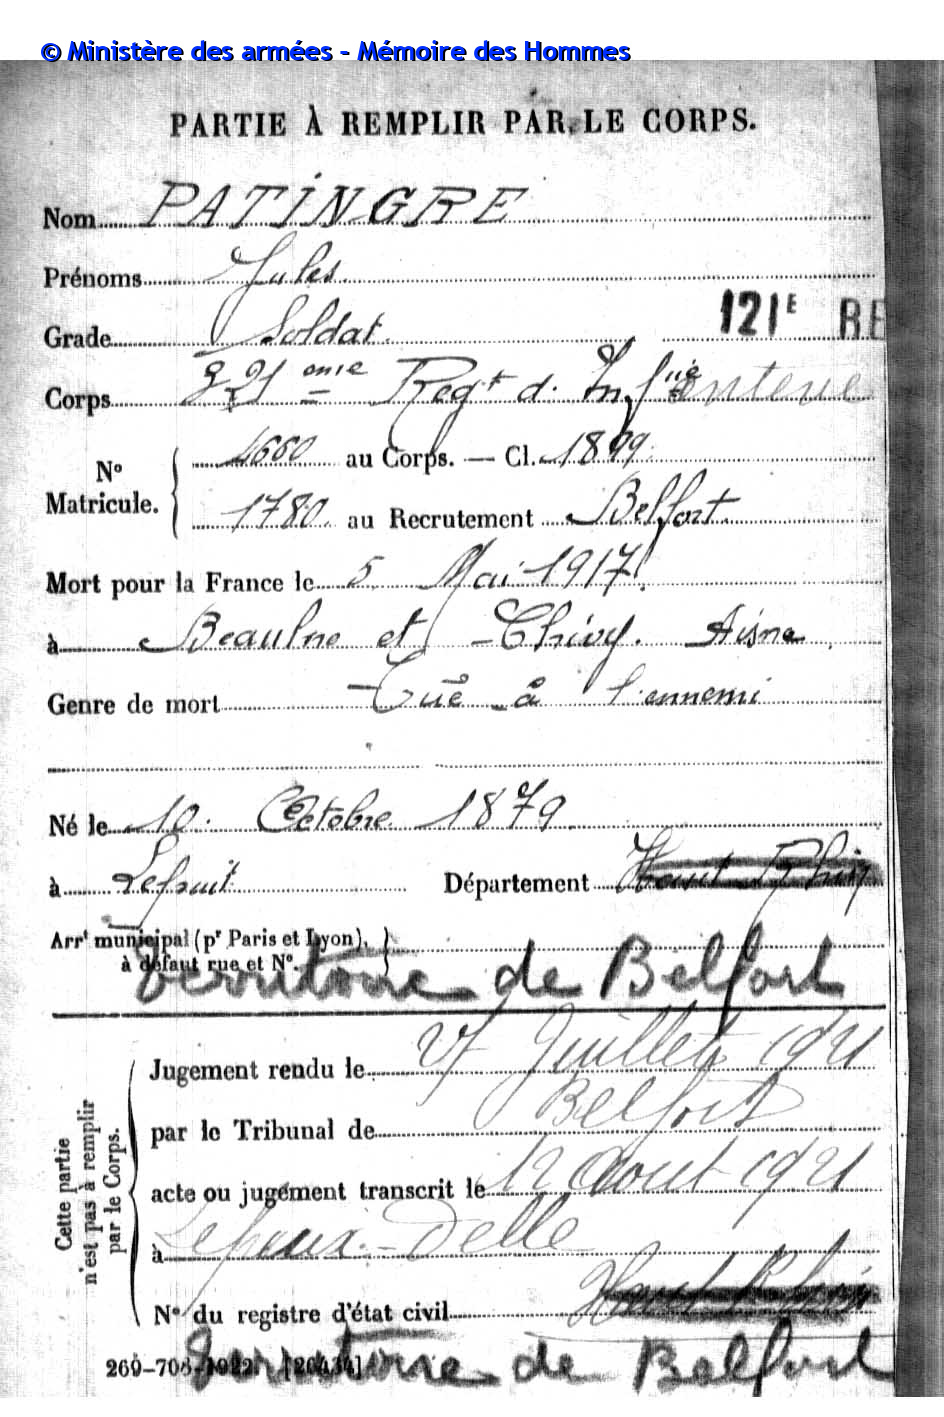 © Ministère des armées - Mémoire des Hommes
PARTIE À REMPLIR PAR LE CORPS.
Nom PATINGRE
Prénoms Jules
121E RE
Grade Soldat
Corps 221 eme Regt d. Infie anterie
No Matricule. 4660 au Corps. — Cl. 1899
1780 au Recrutement Belfort
Mort pour la France le 5 Mai 1917
à Beaulne et Chivy. Aisne
Genre de mort Tué à l'ennemi
Né le 10 Octobre 1879
à Lepuit Département Haut Rhin
Arrt municipal (pr Paris et Lyon),
à défaut rue et No.
Territoire de Belfort
Cette partie
n'est pas à remplir
par le Corps.
Jugement rendu le 27 Juillet 1921
par le Tribunal de Belfort
acte ou jugement transcrit le 12 Aout 1921
à Lepuix-Delle
Haut Rhin
No du registre d'état civil
Territoire de Belfort
269-708-1922. [26434]